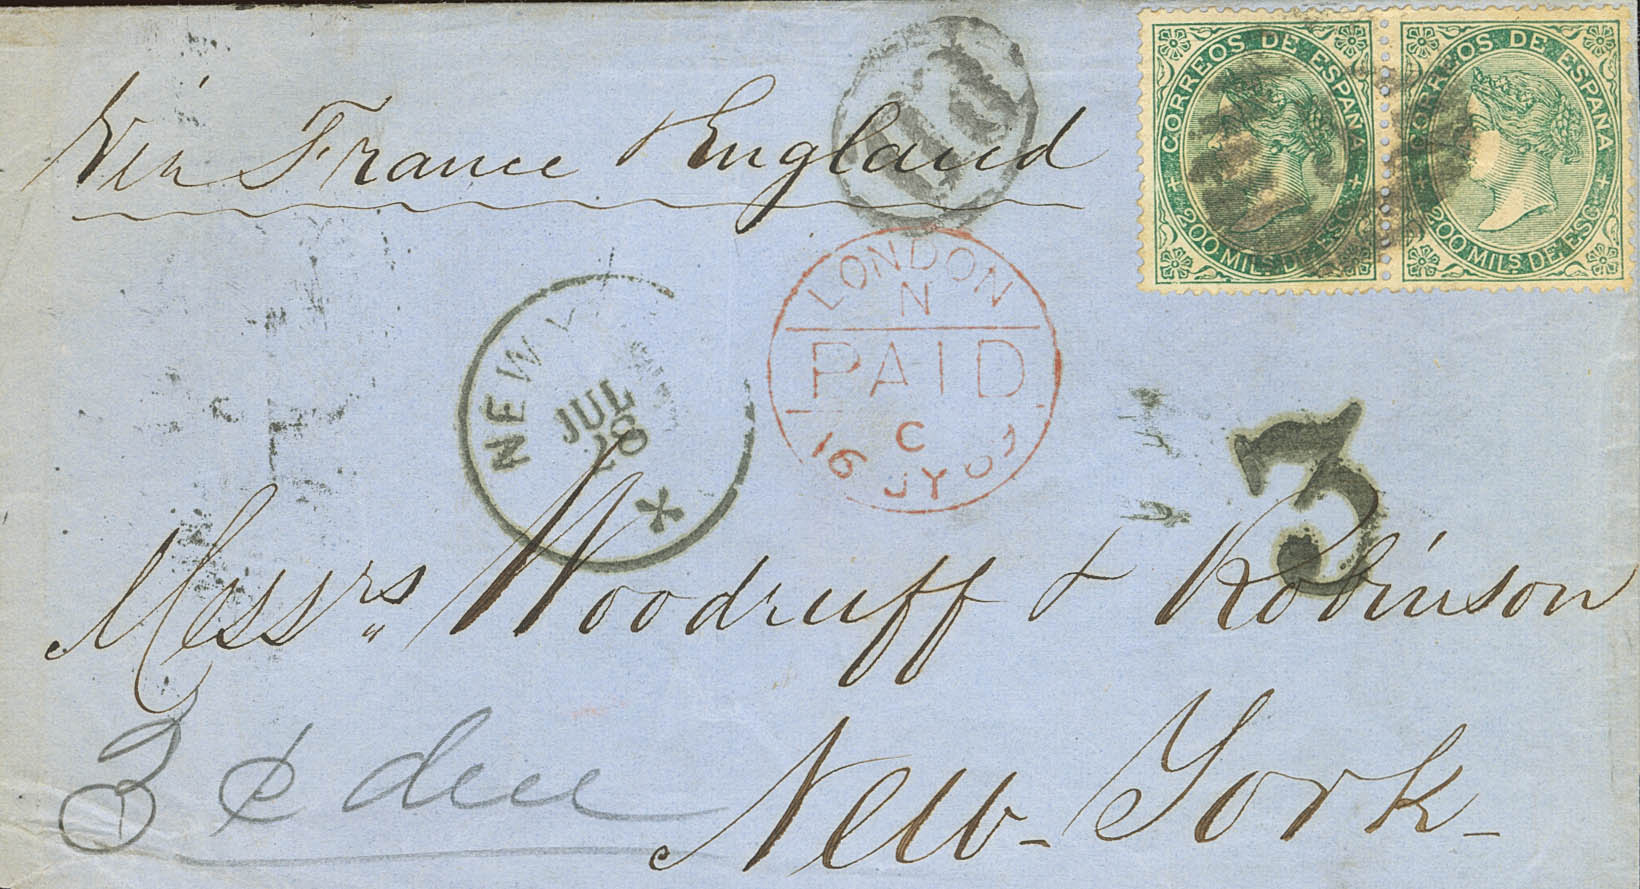 Via France & England
CORREOS DE ESPAÑA
200 MILS DE ESC.
CORREOS DE ESPAÑA
200 MILS DE ESC.
LONDON
N
PAID
C
16 JY 67
NEW
JUL
28
3
Messrs Woodruff & Robinson
New-York-
3 ¢ due